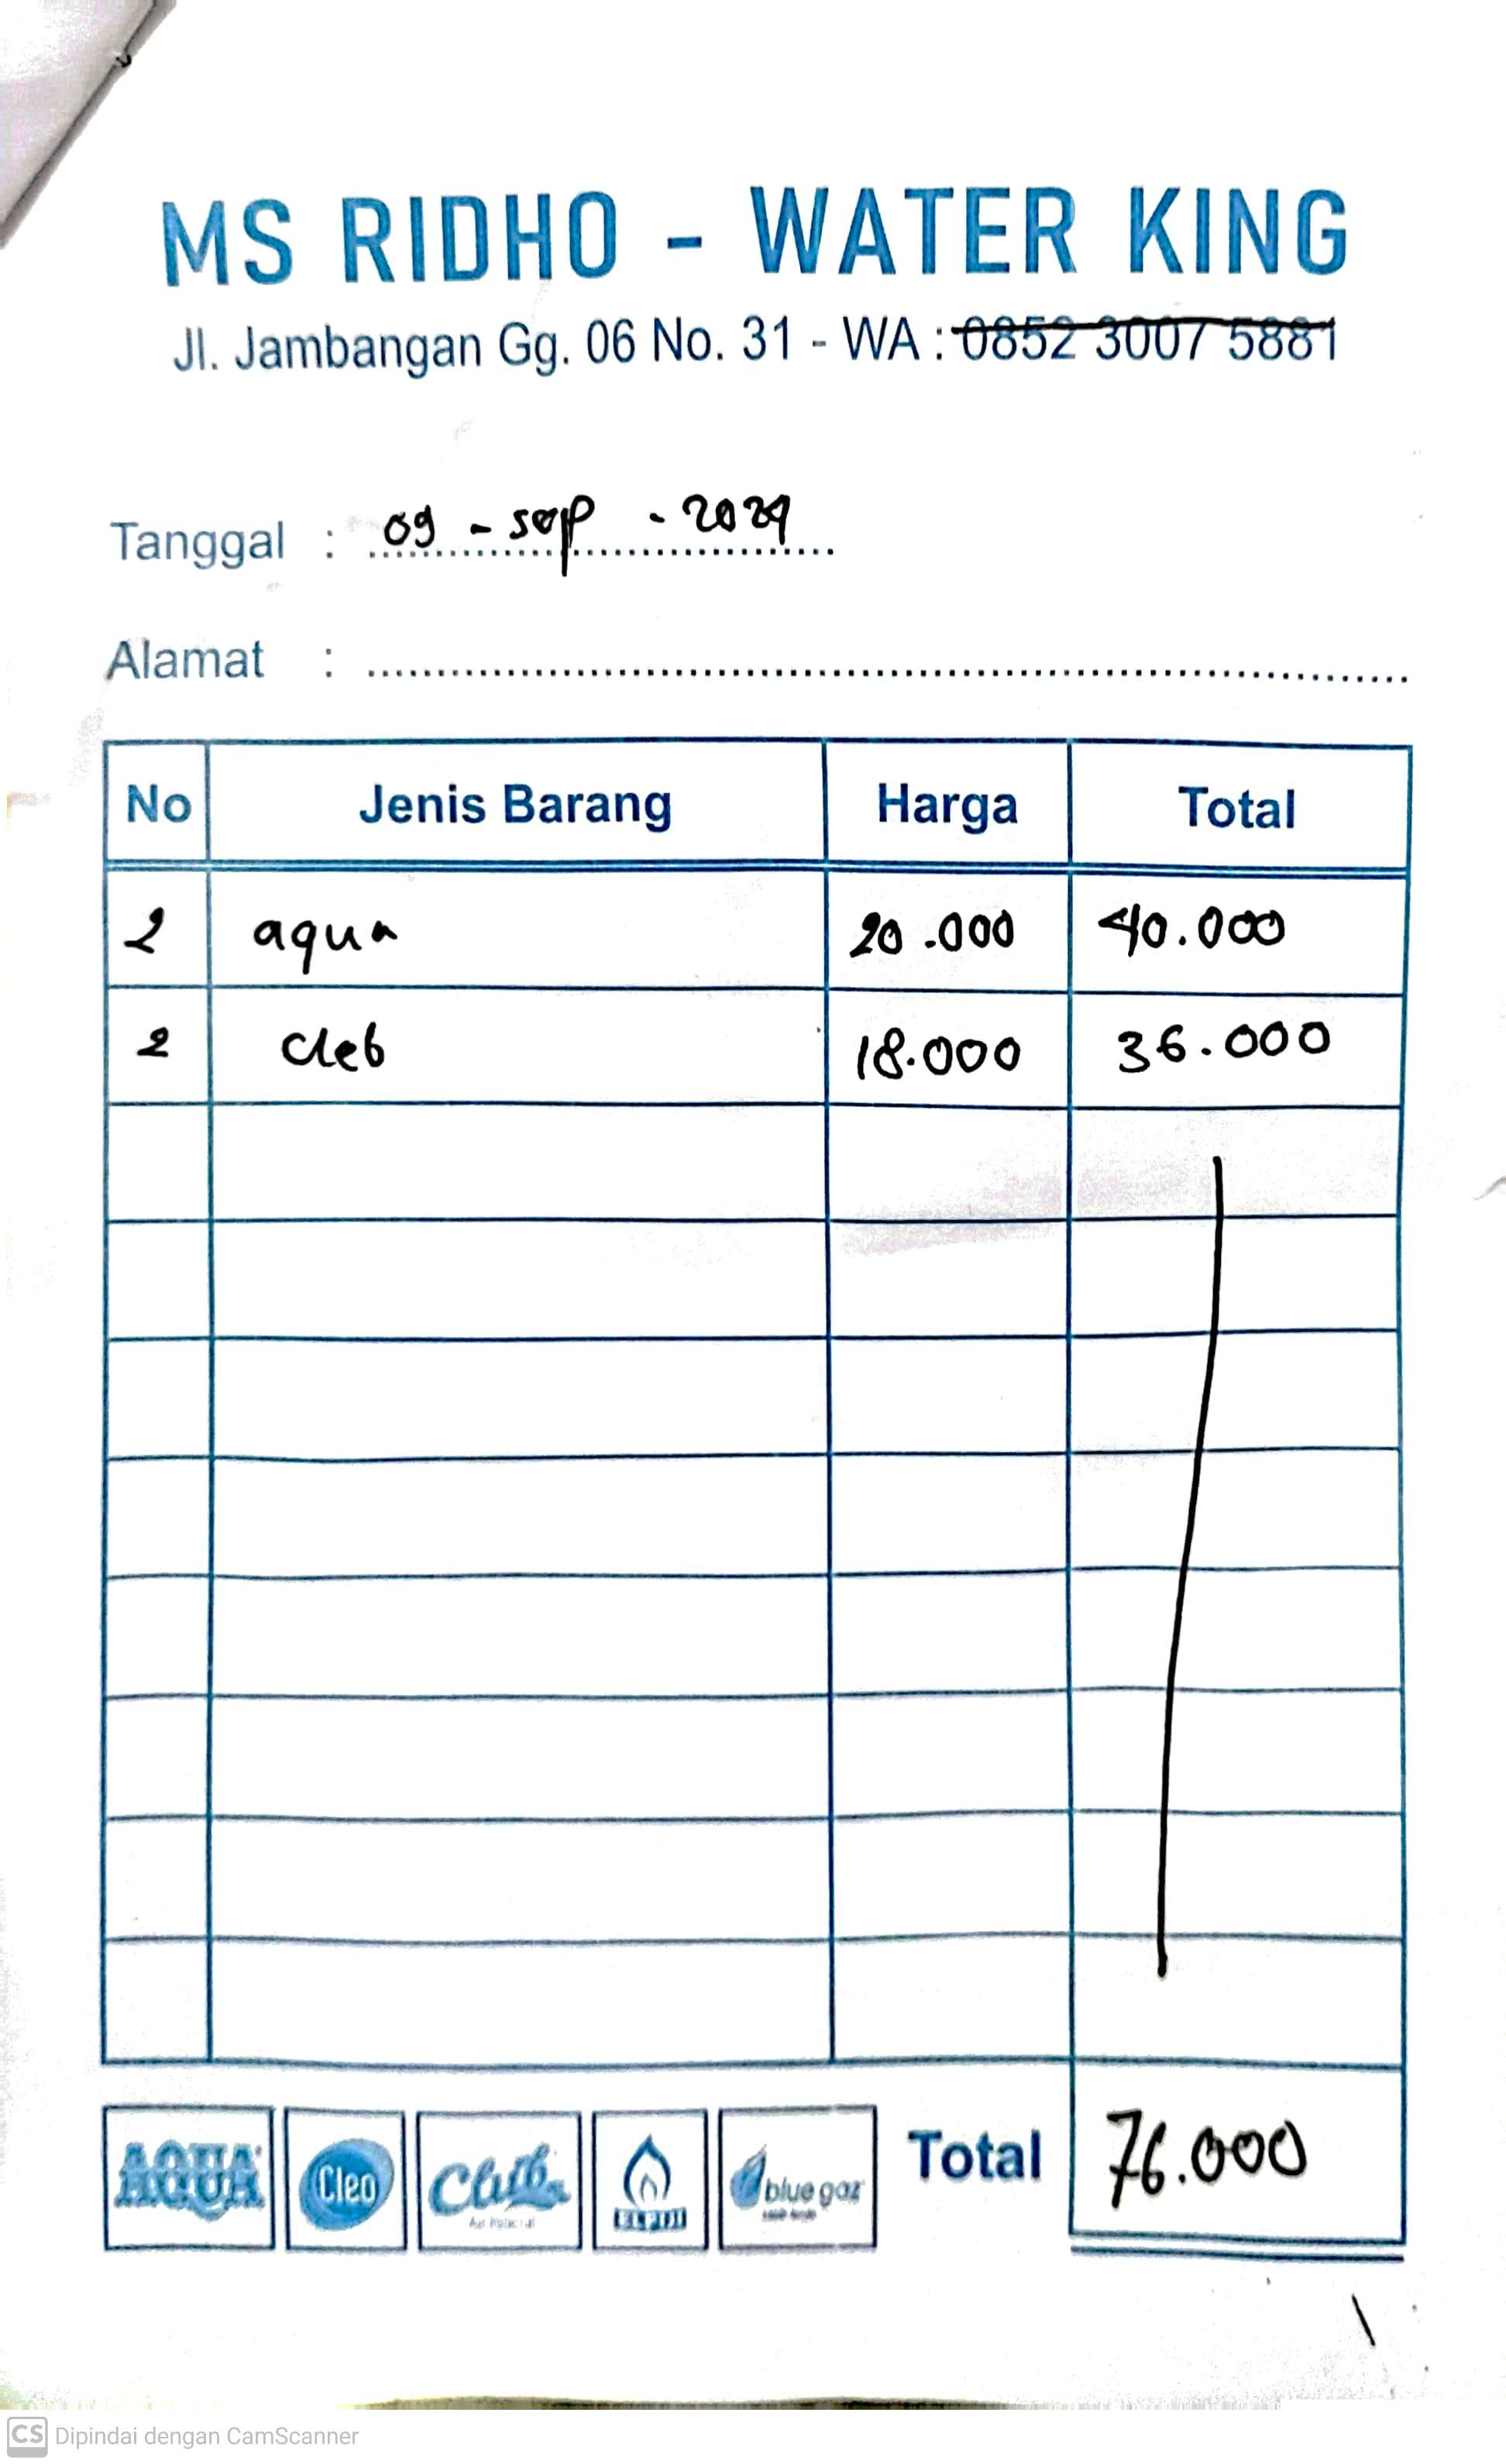 MS RIDHO - WATER KING
Jl. Jambangan Gg. 06 No. 31 - WA : 0852 3007 5881
Tanggal : 09 - sep - 2024
Alamat :
No Jenis Barang Harga Total
2 aqua 20.000 40.000
2 cleo 18.000 36.000
AQUA Cleo Club ELPIJI blue gaz Total 76.000
CS Dipindai dengan CamScanner